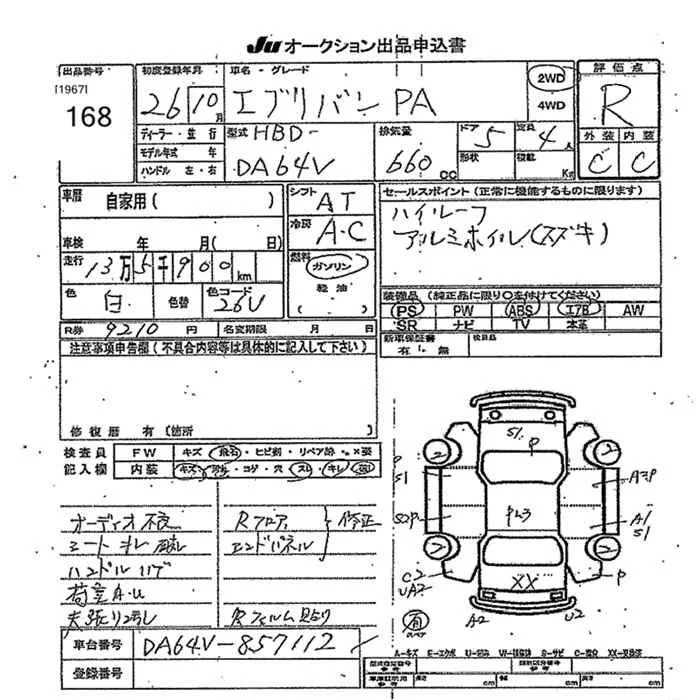 JU オークション出品申込書
出品番号
[1967]
168
初度登録年月
26 10 月
車名・グレード
エブリバン PA
2WD
4WD
評価点
R
外装 内装
C C
ディーラー・並行
モデル年式 年
ハンドル 左・右
型式 HBD-
DA64V
排気量
660 CC
ドア 5
形状
定員 4 人
積載 Kg
車歴 自家用( )
車検 年 月( 日)
走行 13万5千900 km
色 白 色替 色コード 26V
R券 9210 円 名変期限 月 日
シフト AT
冷房 A.C
燃料 ガソリン
軽油
( )
セールスポイント(正常に機能するものに限ります)
ハイルーフ
アルミホイル(スズキ)
装備品(純正品に限り○を付けてください)
PS PW ABS エアB AW
SR ナビ TV 本革
新車保証書 有・無
検員名
注意事項申告欄(不具合内容等は具体的に記入して下さい)
修復歴 有(箇所
検査員
記入欄
FW キズ・飛石・ヒビ割・リペア跡・×要
内装 キズ・汚れ・コゲ・穴・スレ・キレ・
オーディオ不良
シートキレ 破れ
ハンドル
荷室A.U
天張り汚れ
Rフロア
エンドパネル
修正
Rフィルム貼り
車台番号 DA64V-857112
登録番号
S1 P
2 2
P
S1
A3P
PL3
A1
S1
2 2
C2
UA2
XX
P
A2 U2
有
スペア
A-キズ E-エクボ U-凹み W-波 S-サビ C-腐食 XX-交換済
cm cm cm